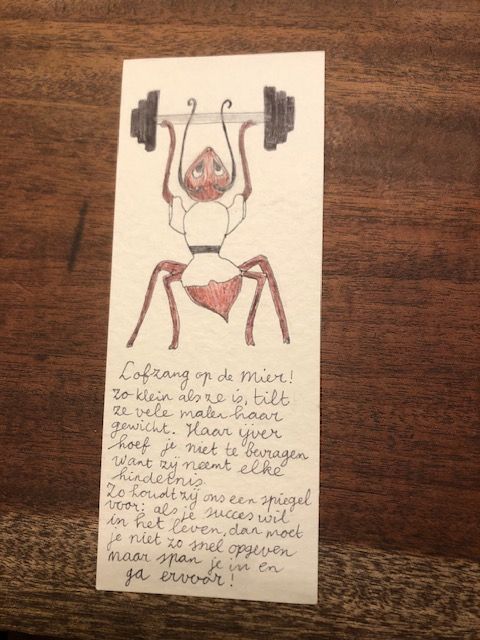 Lofzang op de Mier!
Zo klein als ze is, tilt
ze vele malen haar
gewicht. Haar ijver
hoef je niet te bevragen
want zij neemt elke
hindernis.
Zo houdt zij ons een spiegel
voor: als je succes wil
in het leven, dan moet
je niet zo snel opgeven
maar span je in en
ga ervoor!